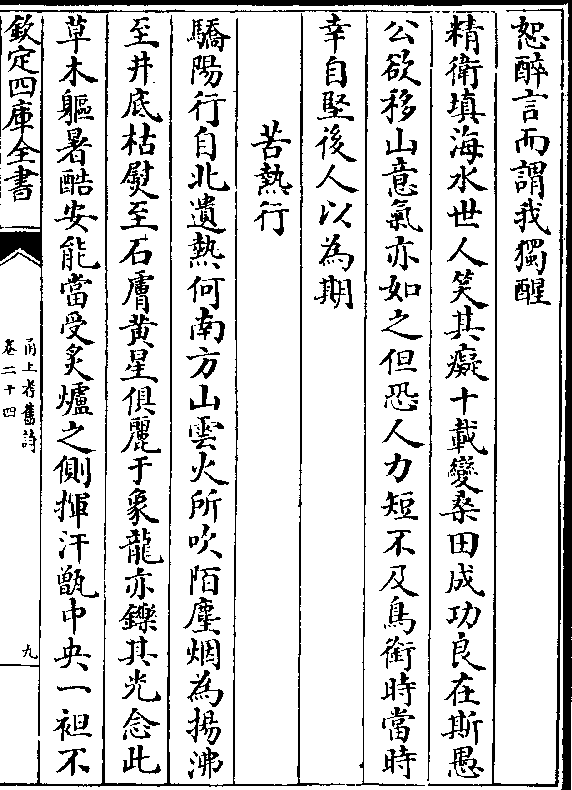 恕醉言而謂我獨醒
精衛填海水世人笑其癡十載變桑田成功良在斯愚
公欲移山意氣亦如之但恐人力短不及鳥銜時當時
幸自堅後人以為期
苦熱行
驕陽行自北遺熱何南方山雲火所吹陌塵烟為揚沸
至井底枯熨至石膚黄星俱麗于象龍亦鑠其光念此
草木軀暑酷安能當受炙爐之側揮汗甑中央一袒不
欽定四庫全書
甬上耆舊詩
卷二十四
九